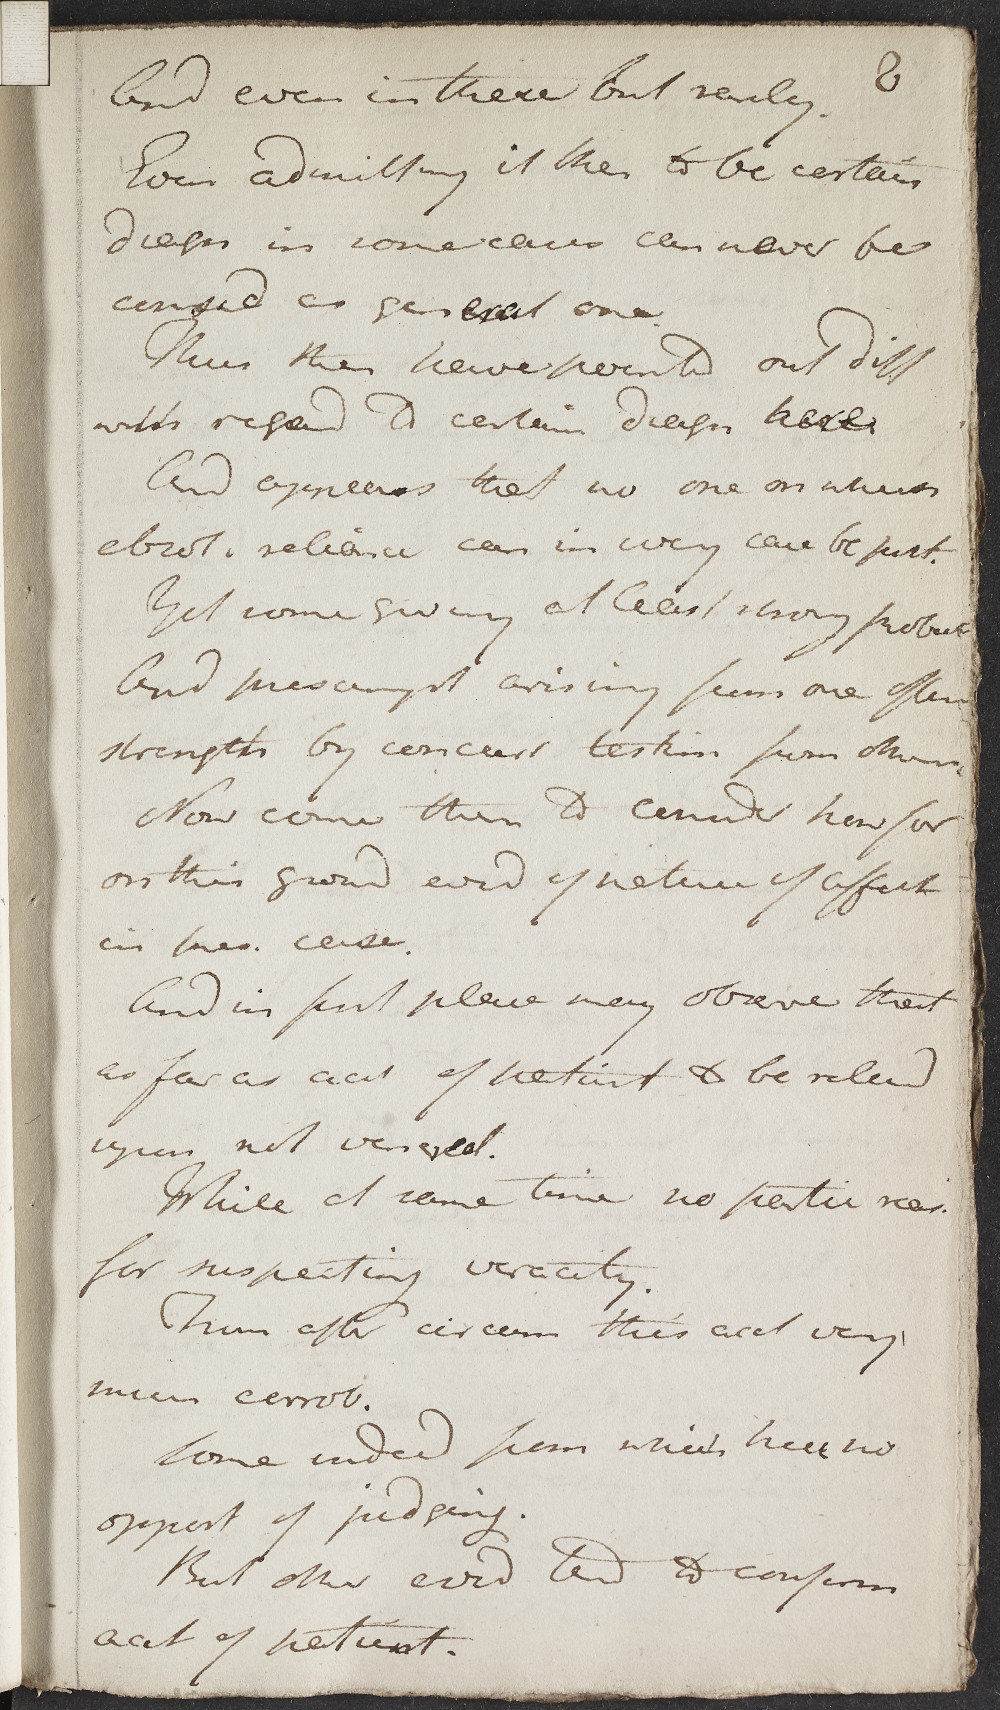 8
And even in these but rarely.
Even admitting it then to be certain
diagn in some cases can never be
consid as general one.
Thus then have pointd out diff
with regard to certain diagn here
And appears that no one on whom
absol. reliance can in every case be put.
Yet some giving at least strong probab
And presumpt arising from one often
strength by concurr testim from others.
Now come then to consider how far
on this ground evid of nature of affect
in pres. case.
And in first place may observe that
as far as acct of patient to be relied
upon not venereal.
While at same time no partic reas.
for suspecting veracity.
From after circum this acct very
much corrob.
Some indeed from which have no
opport of judging.
But other evid tend to confirm
acct of patient.